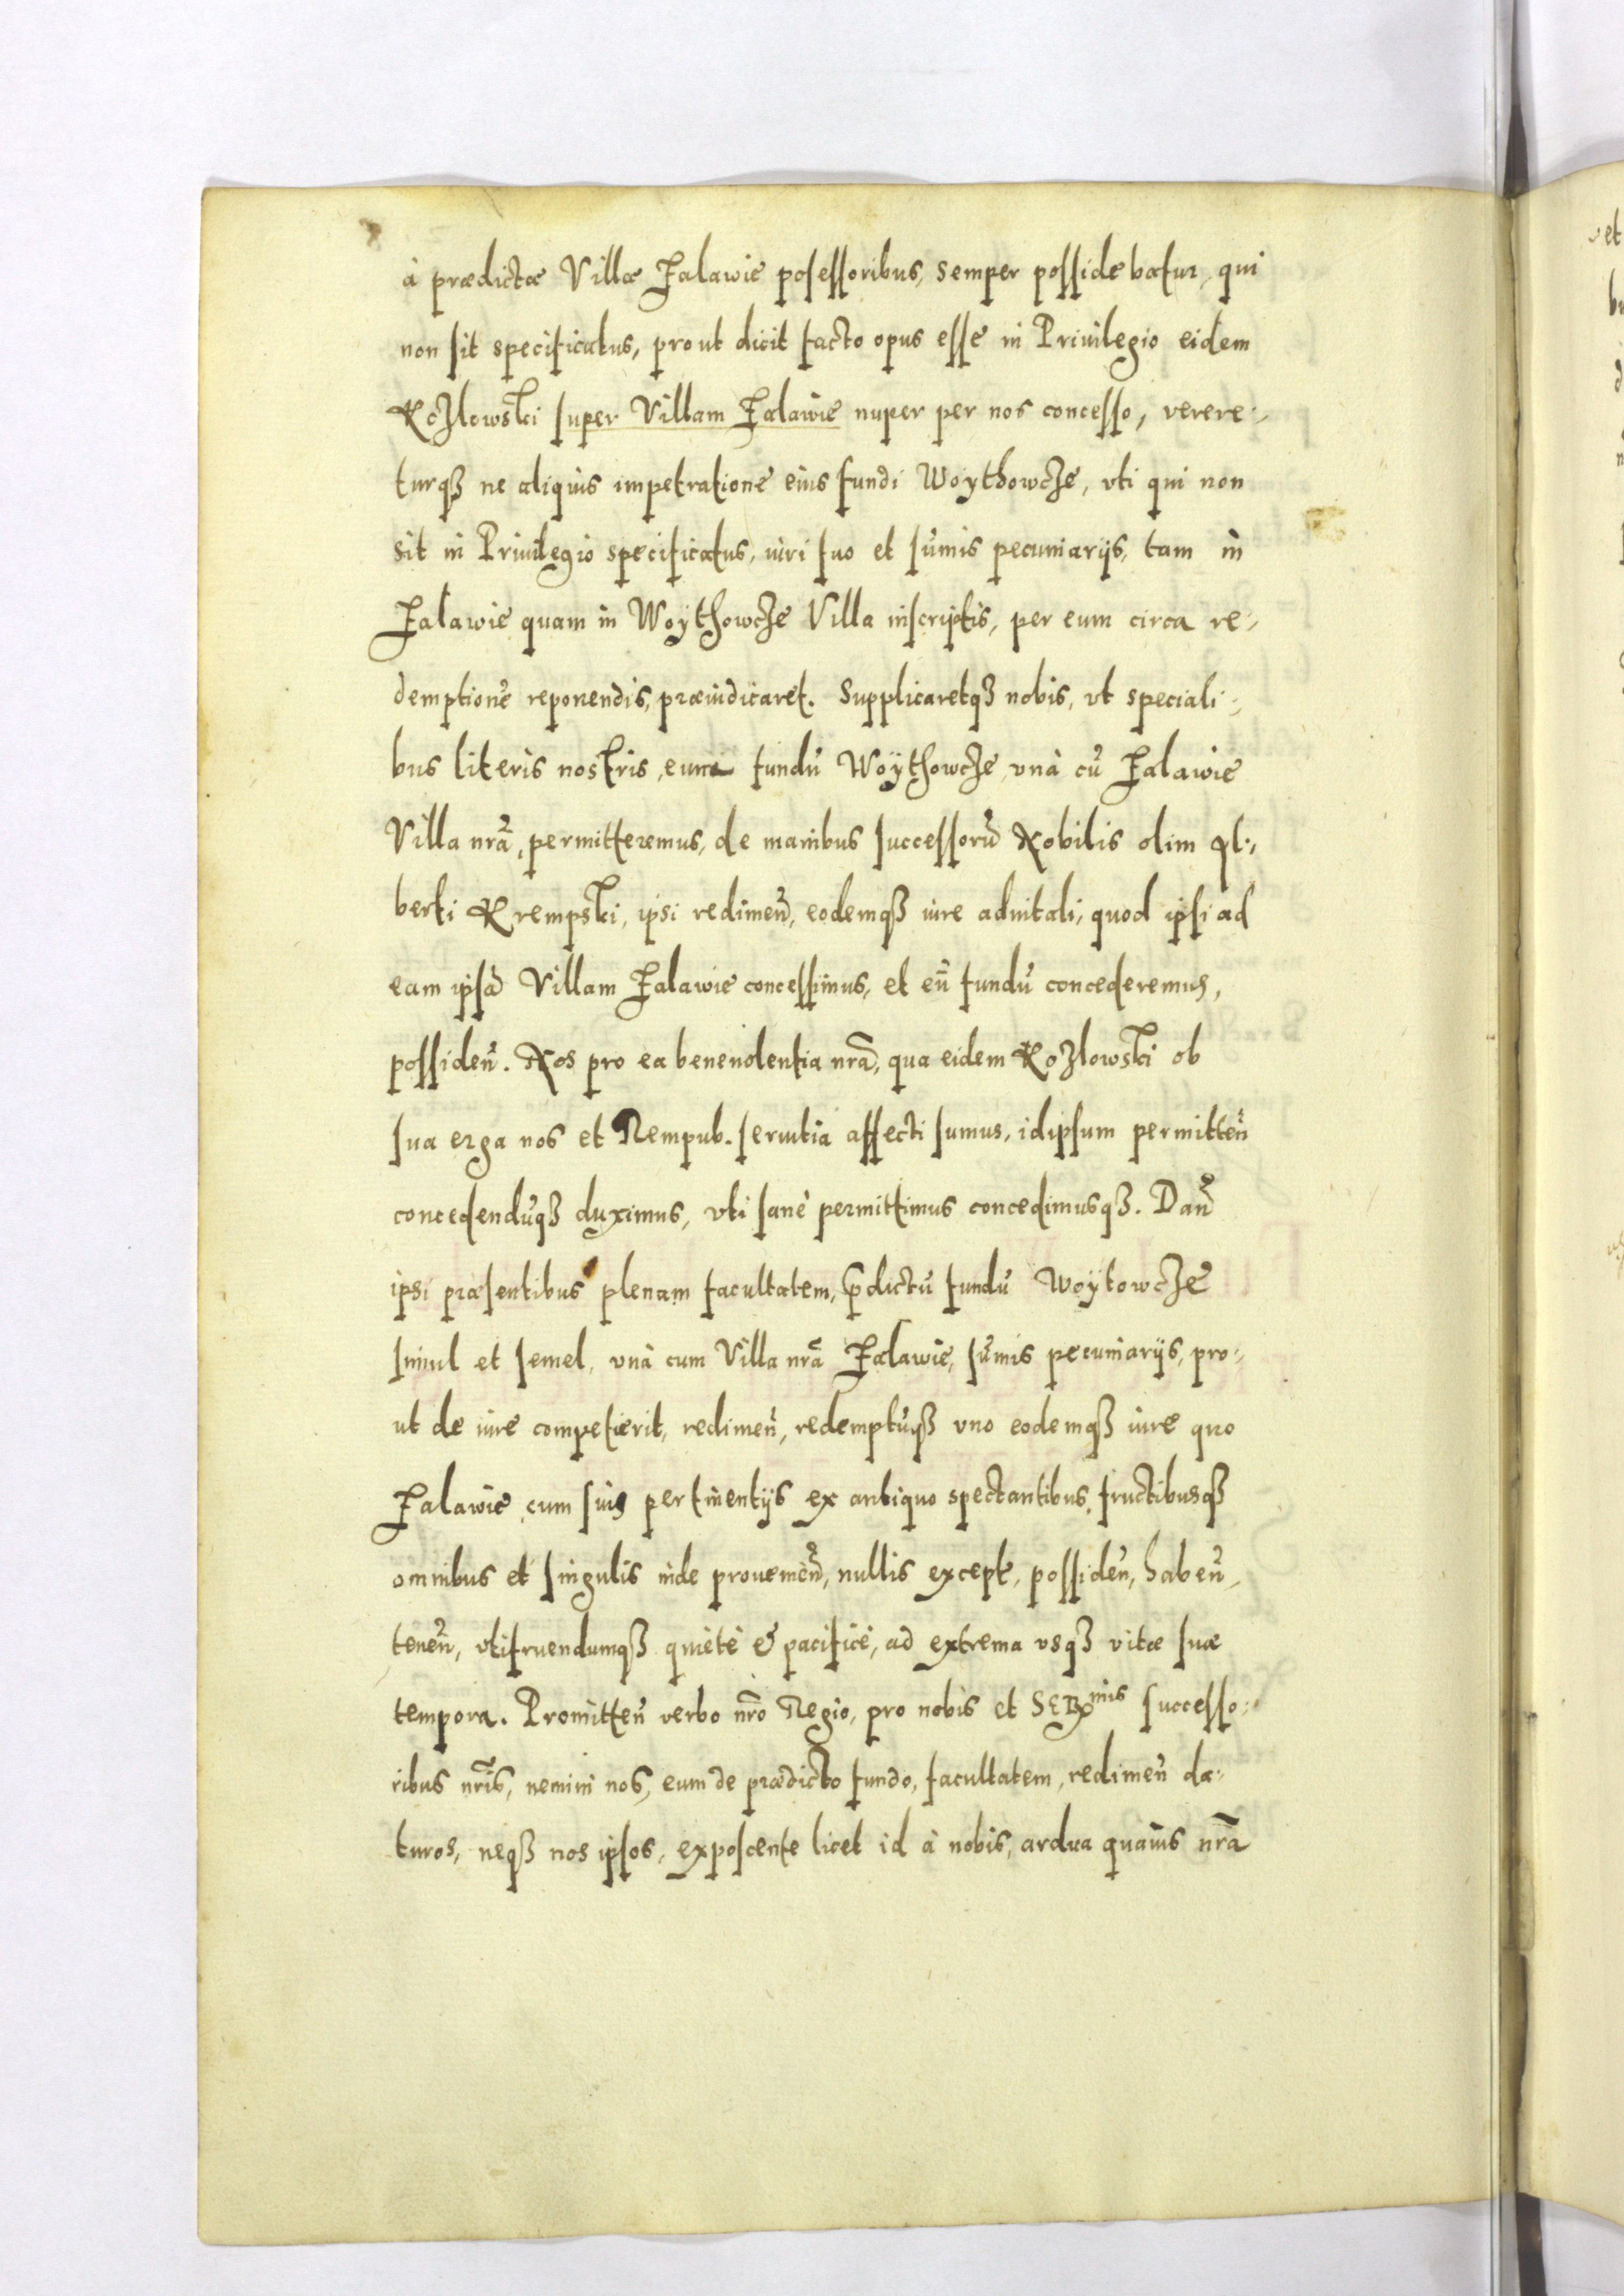 à prædictæ Villæ Zalawie posessoribus, semper possidebatur, qui
non sit specificatus, prout dicit facto opus esse in Priuilegio eidem
Kozlowski super Villam Zalawie nuper per nos concesso, verere-
turqȝ ne aliquis impetratione eius fundi Woythowcze, vti qui non
sit in Priuilegio specificatus, iuri suo et sum̃is pecuniarijs, tam in
Zalawie quam in Woythowcze Villa inscriptis, per eum circa re-
demptionẽ reponendis, præiudicaret. Supplicaretqȝ nobis, vt speciali-
bus literis nostris, eum fundũ Woÿthowcze, vnà cũ Zalawie
Villa nrã, permitteremus, de manibus successorũ Nobilis olim Al-
berti Krempski, ipsi redimeñ, eodemqȝ iure aduitali, quod ipsi ad
eam ipsã Villam Zalawie concessimus, et eũ fundũ concederemus,
possideñ. Nos pro ea beneuolentia nrã, qua eidem Kozlowski ob
sua erga nos et Rempub. seruitia affecti sumus, idipsum permitteñ
concedendũqȝ duximus, vti sanè permittimus concedimusqȝ. Dañ
ipsi præsentibus plenam facultatem, p̃dictũ fundũ Woÿtowcze
simul et semel, vnà cum Villa nrã Zalawie, sum̃is pecuniarijs, pro-
ut de iure competierit, redimeñ, redemptũqȝ vno eodemqȝ iure quo
Zalawie, cum suis pertinentijs ex antiquo spectantibus, fructibusqȝ
omnibus et singulis inde proueneñ, nullis except, possideñ, habeñ,
teneñ, vtifruendumqȝ quietè & pacificè, ad extrema vsqȝ vitæ suæ
tempora. Promitteñ verbo nrõ Regio, pro nobis et SERmis successo-
ribus nrĩs, nemini nos, eum de prædicto fundo, facultatem, redimeñ da-
turos, neqȝ nos ipsos, exposcente licet id à nobis, ardua quauis nrã